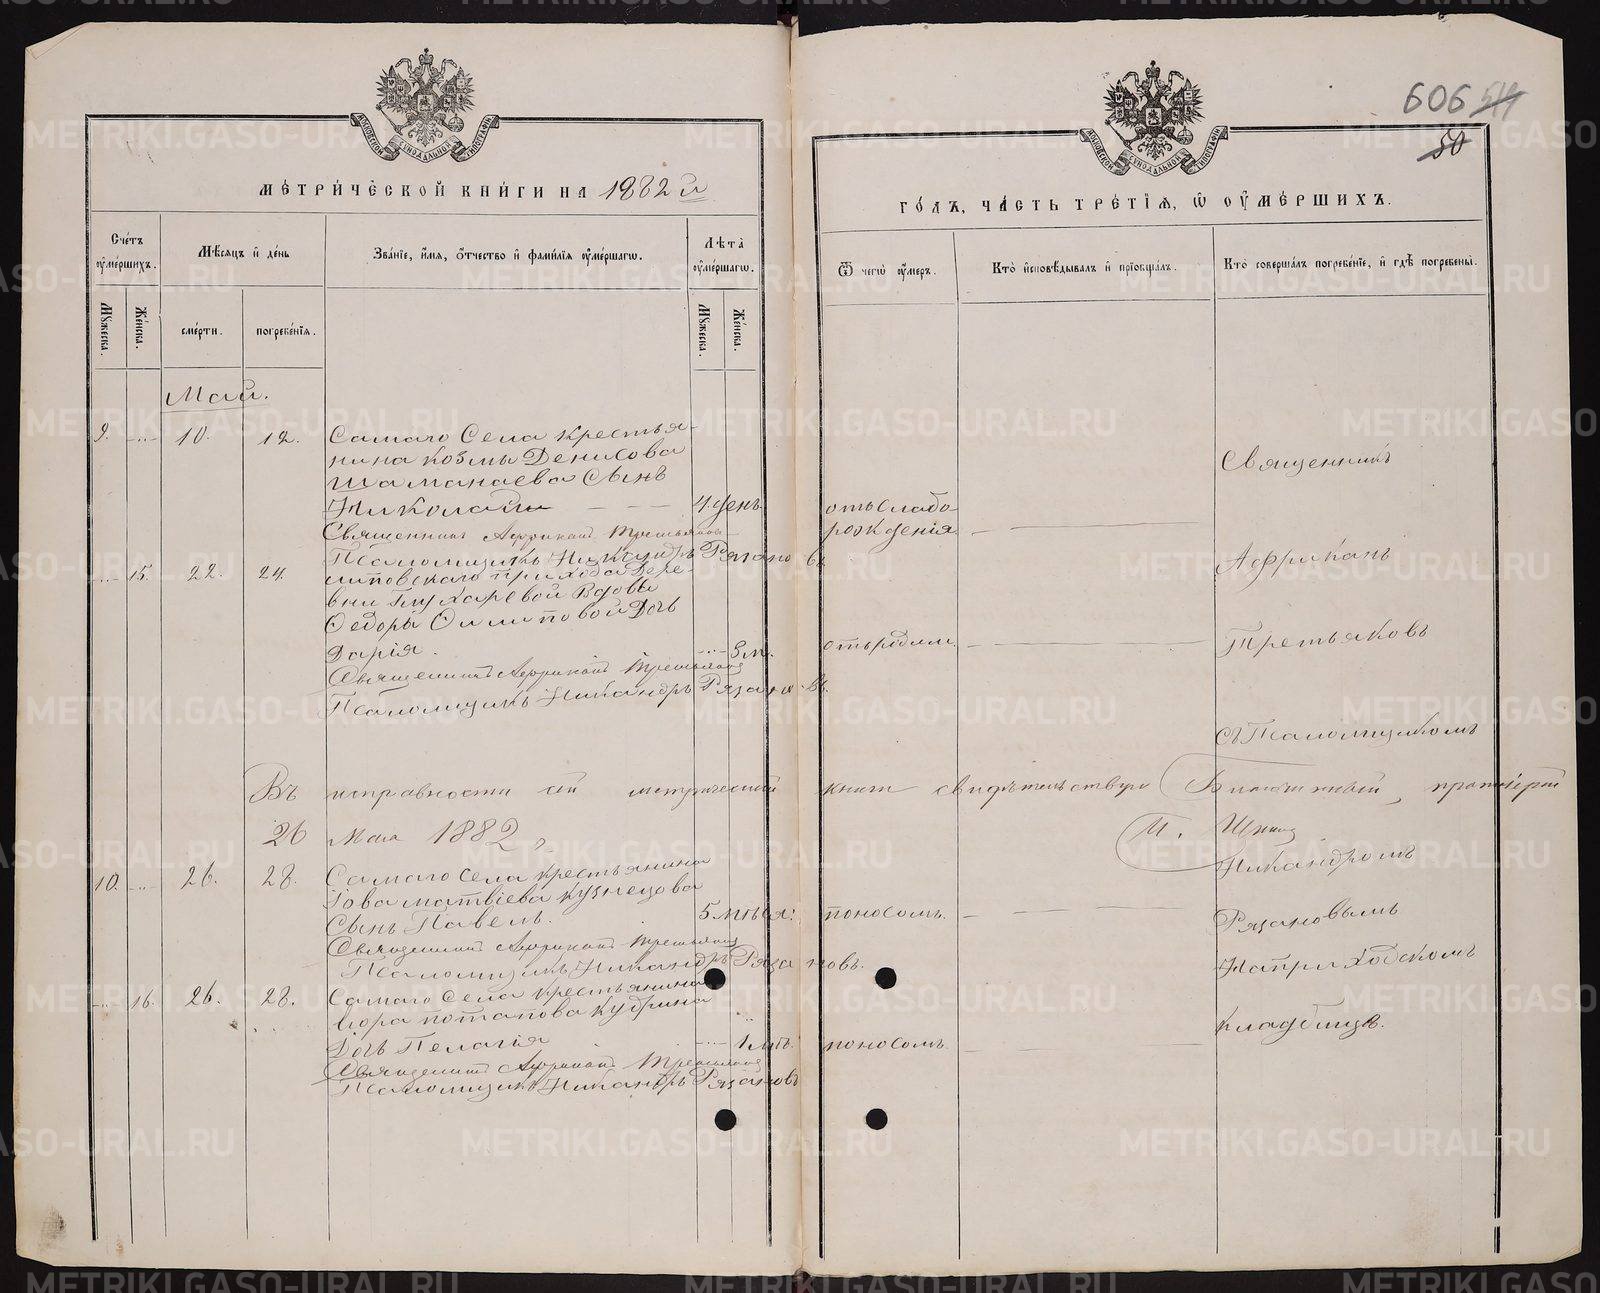 606 54
50
МОСКОВСКОЙ СѴНОДАЛЬНОЙ ТИПОГРАФІИ
МОСКОВСКОЙ СѴНОДАЛЬНОЙ ТИПОГРАФІИ
МЕТРИЧЕСКОЙ КНИГИ НА 1882 й
ГОДЪ, ЧАСТЬ ТРЕТІЯ, Ѡ ОУМЕРШИХЪ.
Счетъ оумершихъ.
Мѣсяцъ и день
Званіе, имя, отчество и фамилія оумершагω.
Лѣта оумершагω.
Ѿ чегω оумеръ.
Кто исповѣдывалъ и пріобщалъ.
Кто совершалъ погребеніе, и гдѣ погребены.
Мужеска.
Женска.
смерти.
погребенія.
Мужеска.
Женска.
Май.
9. -„- 10. 12. Самаго Села крестья-
нина Козмы Денисова
Шаманаева Сынъ
Николай — — — 4. Ден. отъ слабо
рожденія —
Священникъ Африканъ Третьяковъ
Псаломщикъ Никандръ Рязановъ
-„- 15. 22. 24. прихода Дере-
вни Глухаревой Вдовы
Ѳедоры Филиповой Дочь
Дарія. -„- 3 м. отъ родим. —
Священникъ Африканъ Третьяковъ
Псаломщикъ Никандръ Рязановъ
Въ исправности сей метрической книги свидѣтельствую Благочинный, протоіерей
26 Мая 1882
10. -„- 26. 28. Самаго Села крестьянина
Іова Матвіева Кузнецова
Сынъ Павелъ. 5. мѣся: поносомъ. —
Священникъ Африканъ Третьяковъ
Псаломщикъ Никандръ Рязановъ.
-„- 16. 26. 28. Самаго Села крестьянина
Потапова Кудрина
Дочь Пелагія -„- 1 мѣ. поносомъ. —
Священникъ Африканъ Третьяковъ
Псаломщикъ Никандръ Рязановъ
Священникъ
Африканъ
Третьяковъ
съ Псаломщикомъ
Никандромъ
Рязановымъ
На приходскомъ
кладбищѣ.
METRIKI.GASO-URAL.RU